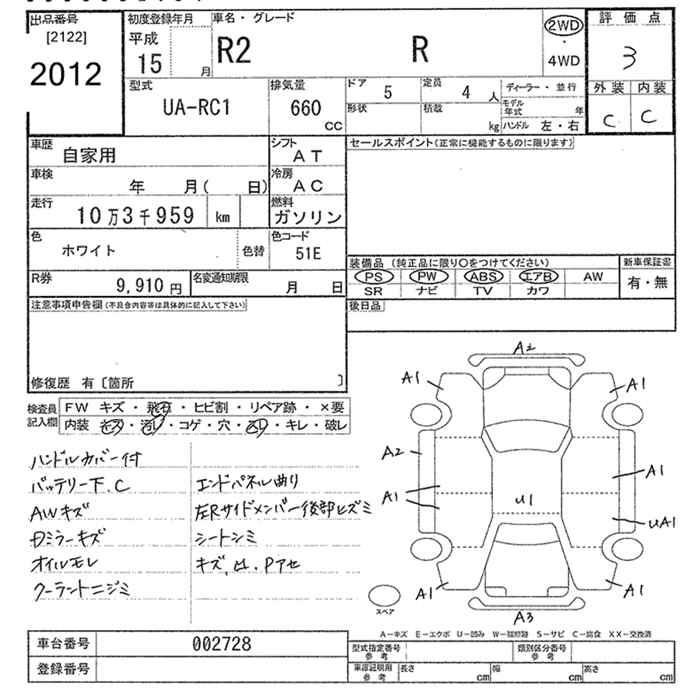 出品番号 初度登録年月 車名・グレード 評価点
[2122] 平成 2WD
2012 15 月 R2 R ・ 4WD 3
型式 排気量 ドア 5 定員 4 人 ディーラー・並行 外装 内装
UA-RC1 660 CC 形状 積載 kg モデル年式 年 C C
ハンドル 左・右
車歴 自家用 シフト AT セールスポイント(正常に機能するものに限ります)
車検 年 月( 日) 冷房 AC
走行 10万3千959 km 燃料 ガソリン
色 ホワイト 色替 色コード 51E
装備品(純正品に限り〇をつけてください) 新車保証書
R券 9,910円 名変通知期限 月 日 PS PW ABS エアB AW 有・無
SR ナビ TV カワ
注意事項申告欄(不具合内容等は具体的に記入して下さい) 後日品
修復歴 有〔箇所 〕
検査員記入欄 FW キズ・飛石・ヒビ割・リペア跡・×要
内装 キズ・汚レ・コゲ・穴・スレ・キレ・破レ
ハンドルカバー付
バッテリー下.C エンドパネル曲り
AWキズ 左Rサイドメンバー後部ヒズミ
Dミラーキズ シートシミ
オイルモレ キズ,凹.Pアセ
クーラントニジミ
A2
A1 A1
A2 A1
A1 U1 UA1
A1 A1
スペア A3
A-キズ E-エクボ U-凹み W-補修跡 S-サビ C-腐食 XX-交換済
車台番号 002728 型式指定番号 参考 類別区分番号 参考
登録番号 車庫証明用 参考 長さ cm 幅 cm 高さ cm